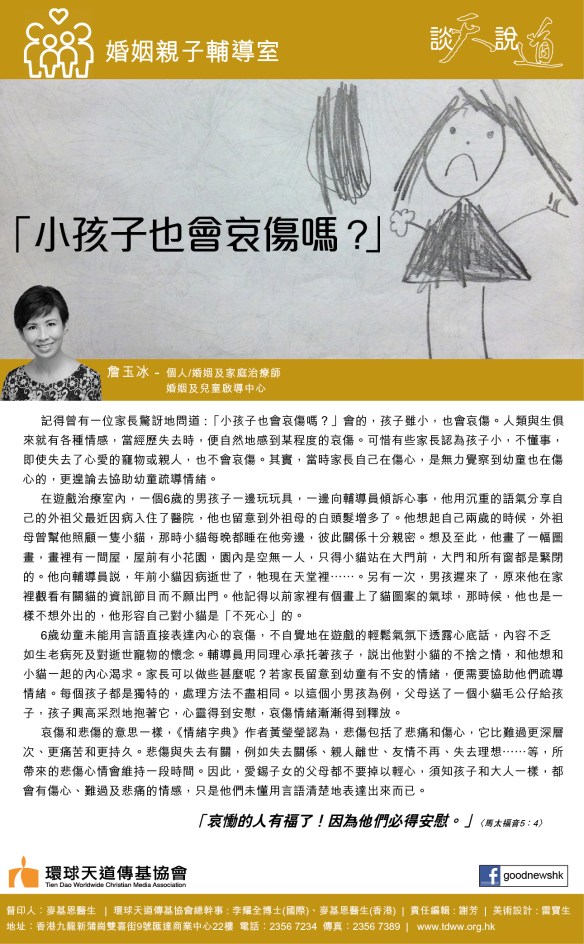 婚姻親子輔導室
談天說道
「小孩子也會哀傷嗎？」
詹玉冰 - 個人/婚姻及家庭治療師
婚姻及兒童啟導中心
記得曾有一位家長驚訝地問道：「小孩子也會哀傷嗎？」會的，孩子雖小，也會哀傷。人類與生俱
來就有各種情感，當經歷失去時，便自然地感到某程度的哀傷。可惜有些家長認為孩子小，不懂事，
即使失去了心愛的寵物或親人，也不會哀傷。其實，當時家長自己在傷心，是無力覺察到幼童也在傷
心的，更遑論去協助幼童疏導情緒。
在遊戲治療室內，一個6歲的男孩子一邊玩玩具，一邊向輔導員傾訴心事，他用沉重的語氣分享自
己的外祖父最近因病入住了醫院，他也留意到外祖母的白頭髮增多了。他想起自己兩歲的時候，外祖
母曾幫他照顧一隻小貓，那時小貓每晚都睡在他旁邊，彼此關係十分親密。想及至此，他畫了一幅圖
畫，畫裡有一間屋，屋前有小花園，園內是空無一人，只得小貓站在大門前，大門和所有窗都是緊閉
的。他向輔導員說，年前小貓因病逝世了，牠現在天堂裡⋯⋯。另有一次，男孩遲來了，原來他在家
裡觀看有關貓的資訊節目而不願出門。他記得以前家裡有個畫上了貓圖案的氣球，那時候，他也是一
樣不想外出的，他形容自己對小貓是「不死心」的。
6歲幼童未能用言語直接表達內心的哀傷，不自覺地在遊戲的輕鬆氣氛下透露心底話，內容不乏
如生老病死及對逝世寵物的懷念。輔導員用同理心承托著孩子，說出他對小貓的不捨之情，和他想和
小貓一起的內心渴求。家長可以做些甚麼呢？若家長留意到幼童有不安的情緒，便需要協助他們疏導
情緒。每個孩子都是獨特的，處理方法不盡相同。以這個小男孩為例，父母送了一個小貓毛公仔給孩
子，孩子興高采烈地抱著它，心靈得到安慰，哀傷情緒漸漸得到釋放。
哀傷和悲傷的意思一樣，《情緒字典》作者黃瑩瑩認為，悲傷包括了悲痛和傷心，它比難過更深層
次、更痛苦和更持久。悲傷與失去有關，例如失去關係、親人離世、友情不再、失去理想⋯⋯等，所
帶來的悲傷心情會維持一段時間。因此，愛錫子女的父母都不要掉以輕心，須知孩子和大人一樣，都
會有傷心、難過及悲痛的情感，只是他們未懂用言語清楚地表達出來而已。
「哀慟的人有福了！因為他們必得安慰。」（馬太福音5：4）
環球天道傳基協會
Tien Dao Worldwide Christian Media Association
f goodnewshk
督印人：麥基恩醫生 | 環球天道傳基協會總幹事：李耀全博士(國際)、麥基恩醫生(香港) | 責任編輯：謝芳 | 美術設計：雷寶生
地址：香港九龍新蒲崗雙喜街9號匯達商業中心22樓 電話：2356 7234 傳真：2356 7389 | www.tdww.org.hk